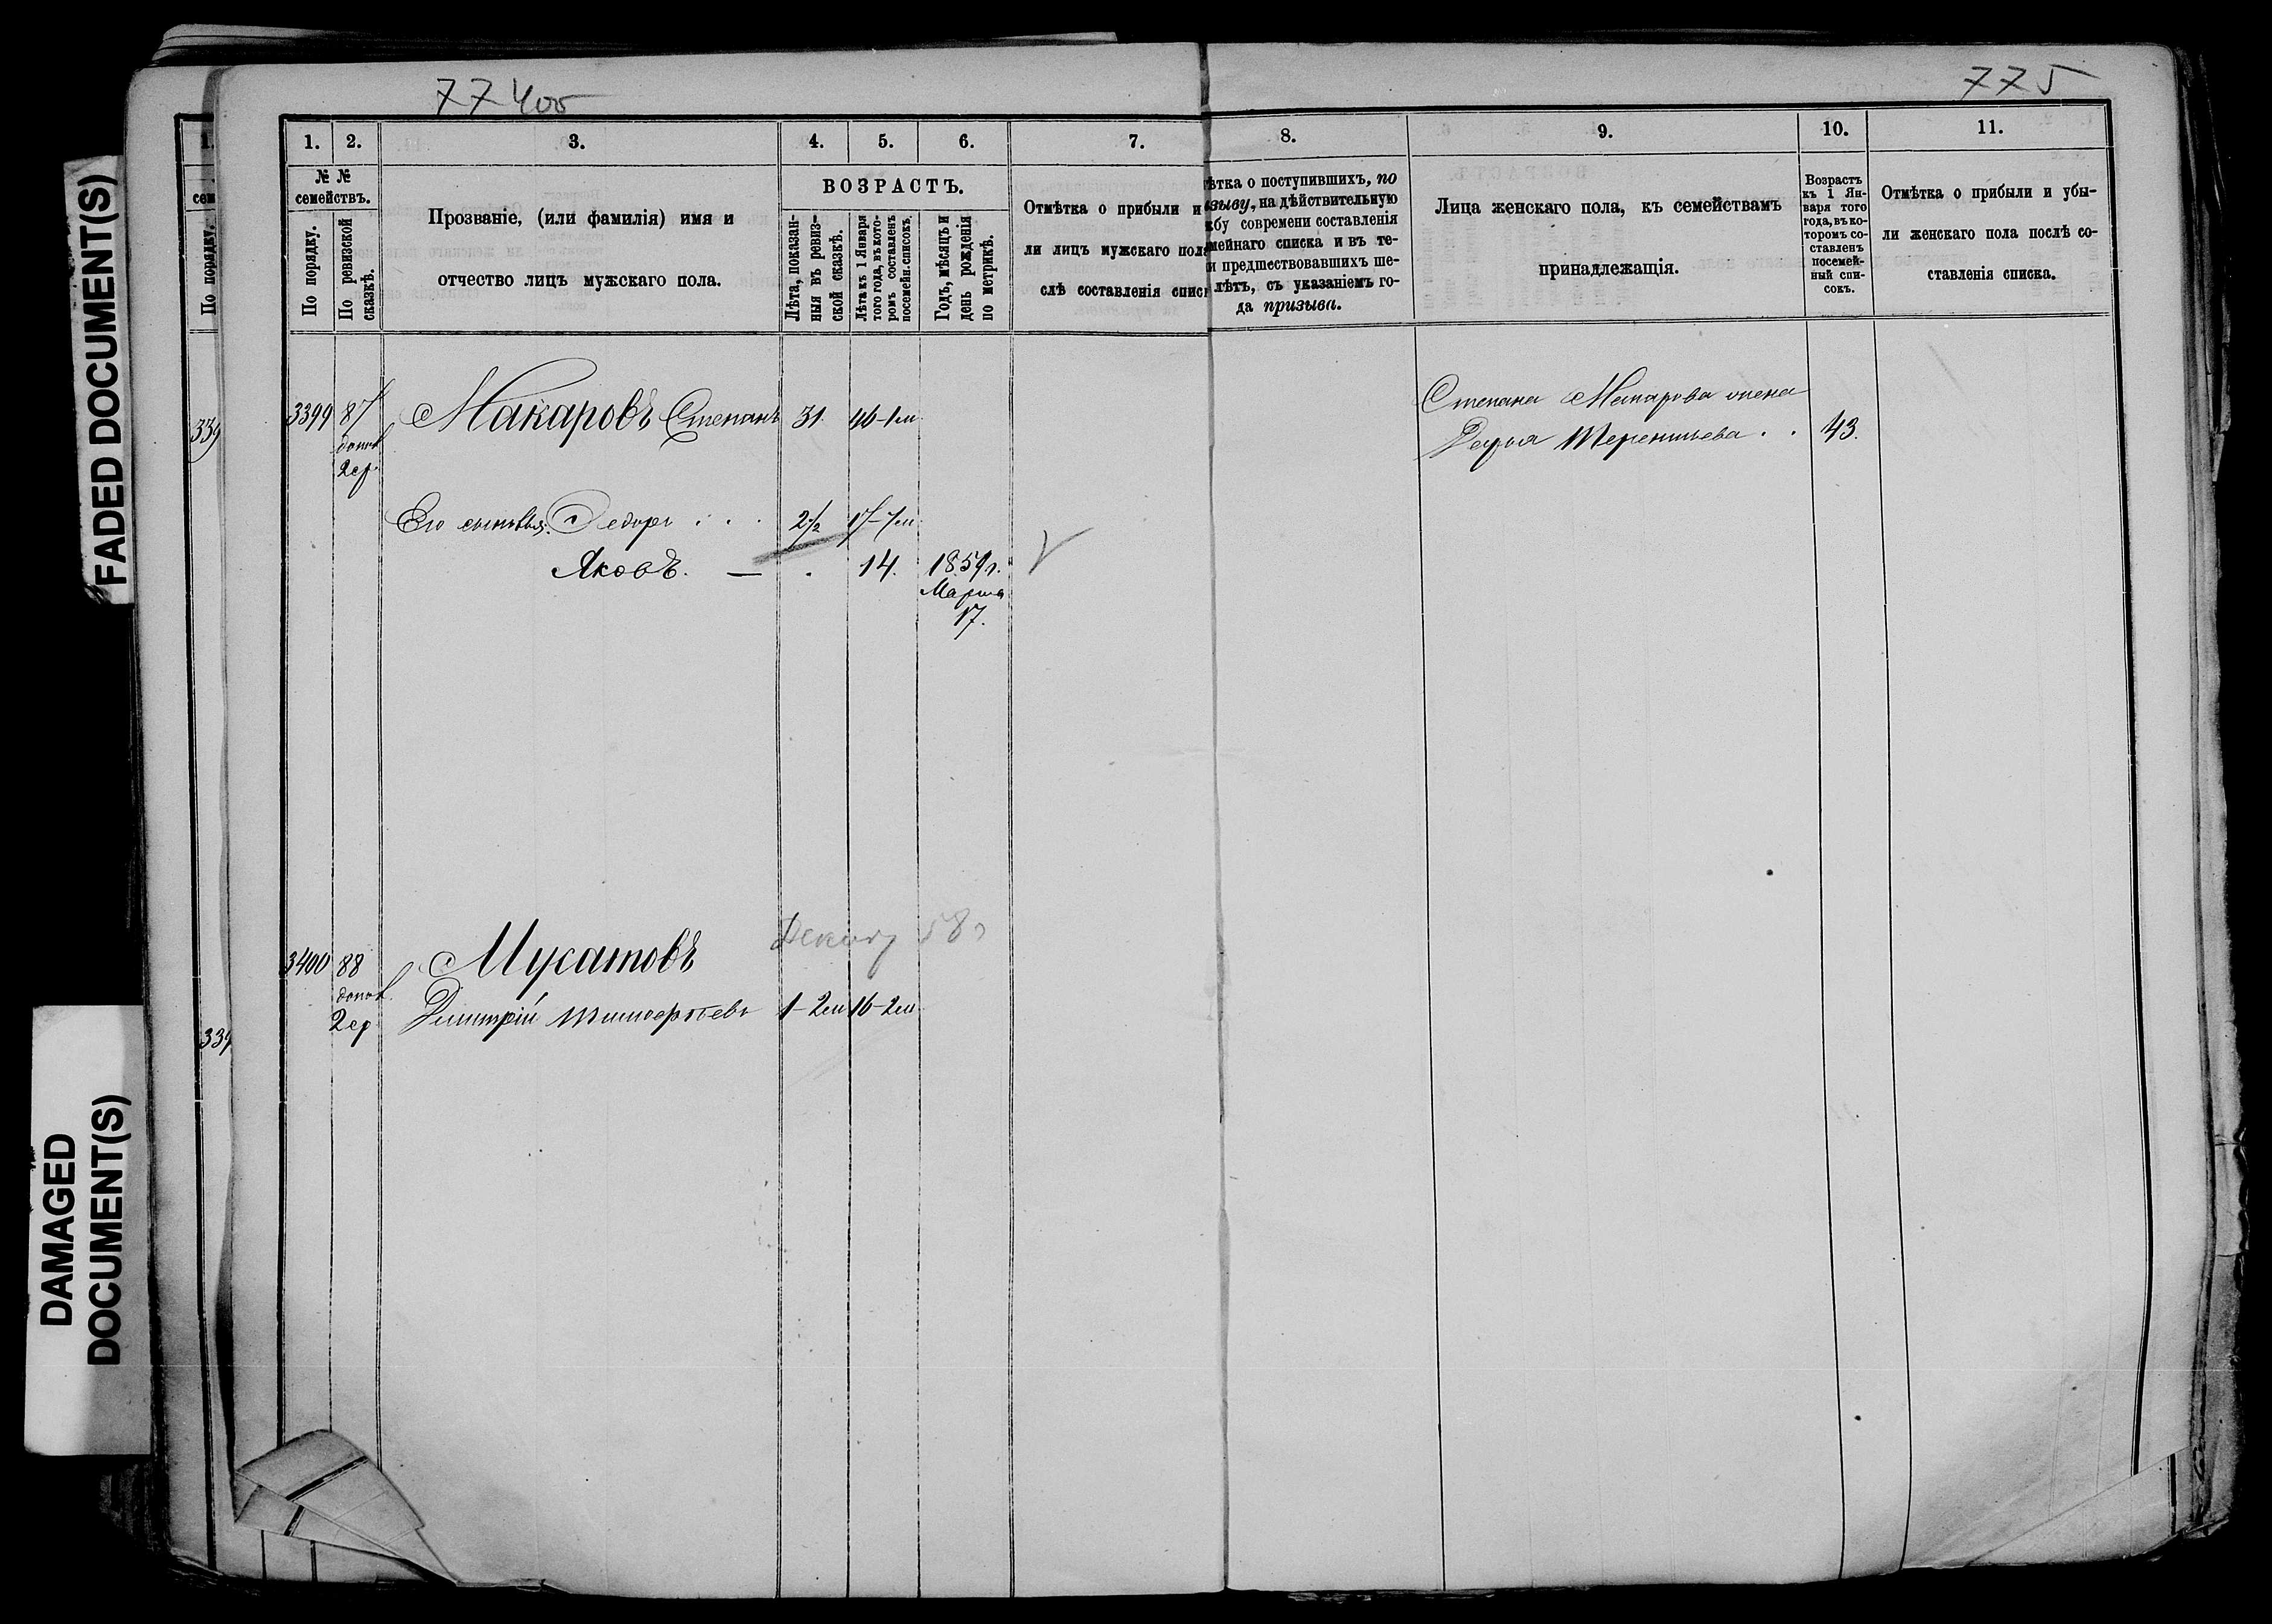 FADED DOCUMENT(S)
DAMAGED
DOCUMENT(S)
775
1.
2.
3.
4.
5.
6.
7.
8.
9.
10.
11.
№ №
семействъ.
По порядку.
По ревизской
сказкѣ.
Прозваніе, (или фамилія) имя и
отчество лицъ мужскаго пола.
ВОЗРАСТЪ.
Лѣта, показан-
ныя въ ревиз-
ской сказкѣ.
Лѣта къ 1 Января
того года, въ кото-
ромъ составленъ
посемейн. списокъ.
Годъ, мѣсяцъ и
день рожденія
по метрикѣ.
Отмѣтка о прибыли и
ли лицъ мужскаго пола
слѣ составленія спис
ѣтка о поступившихъ, по
зыву, на дѣйствительную
жбу современи составленія
мейнаго списка и въ те-
и предшествовавшихъ ше-
лѣтъ, съ указаніемъ го-
да призыва.
Лица женскаго пола, къ семействамъ
принадлежащія.
Возрастъ
къ 1 Ян-
варя того
года, въ ко-
торомъ со-
ставленъ
посемей-
ный спи-
сокъ.
Отмѣтка о прибыли и убы-
ли женскаго пола послѣ со-
ставленія списка.
3399 87 Макаровъ Степанъ 31. 46-1м
допол
2 ср.
Степана Макарова жена
Дарья Терентьева . . 43.
Его сыновья: Ѳедоръ . . . 2½ 17-1м
Яковъ. — . 14. 1859г.
Марта
17.
3400 88 Мусатовъ
допол.
2 ср. Дмитрій Тимоѳѣевъ 1-2м 16-2м